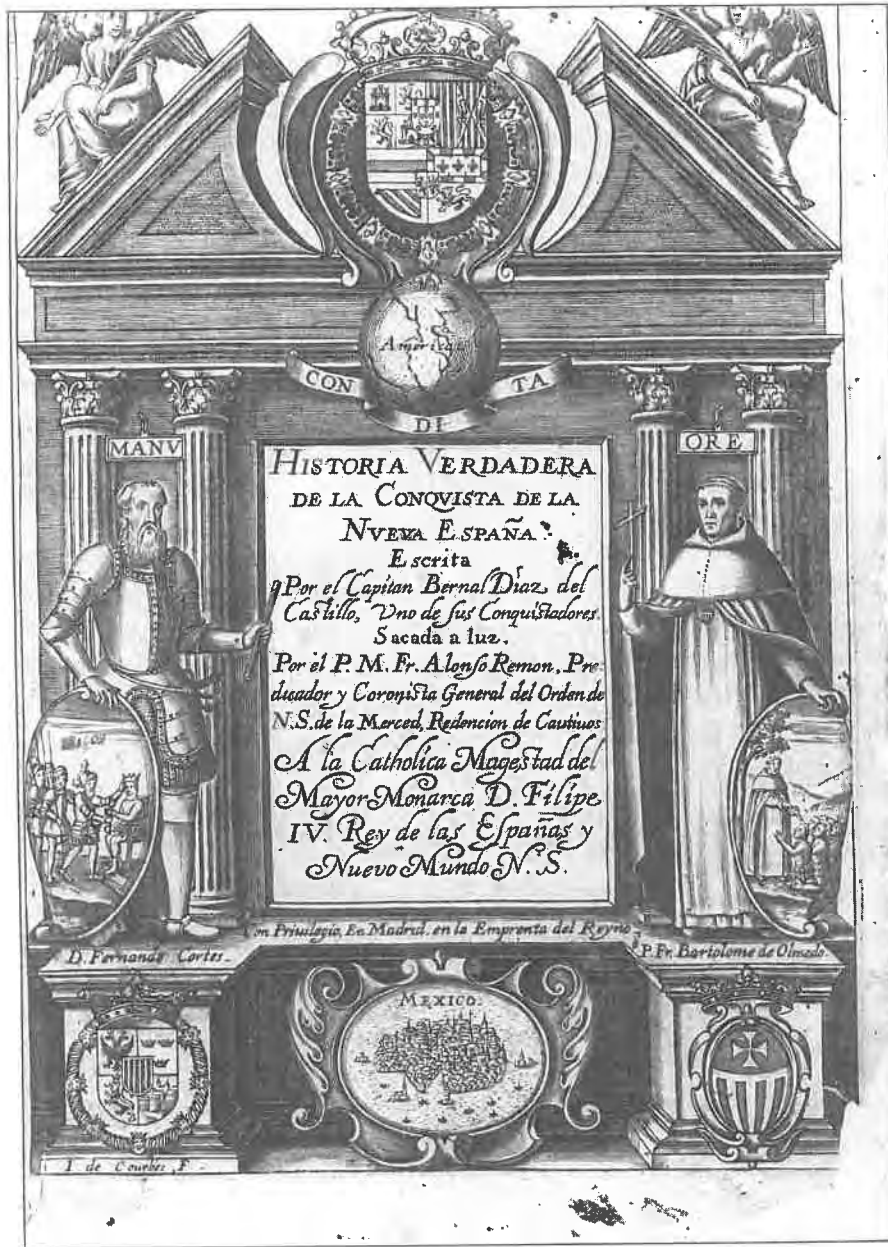 America
CON
DI
TA
MANV
ORE
HISTORIA VERDADERA
DE LA CONQVISTA DE LA
NVEVA ESPAÑA.
Escrita
Por el Capitan Bernal Diaz del
Castillo, Vno de sus Conquistadores.
Sacada a luz.
Por el P. M. Fr. Alonso Remon, Pre
dicador y Coronista General del Orden de
N. S. de la Merced, Redencion de Cautiuos
A la Catholica Magestad del
Mayor Monarca D. Filipe
IV. Rey de las Españas y
Nuevo Mundo N. S.
Con Priuilegio, En Madrid, en la Emprenta del Reyno
D. Fernando Cortes.
P. Fr. Bartolome de Olmedo.
MEXICO.
I de Courbes, F.